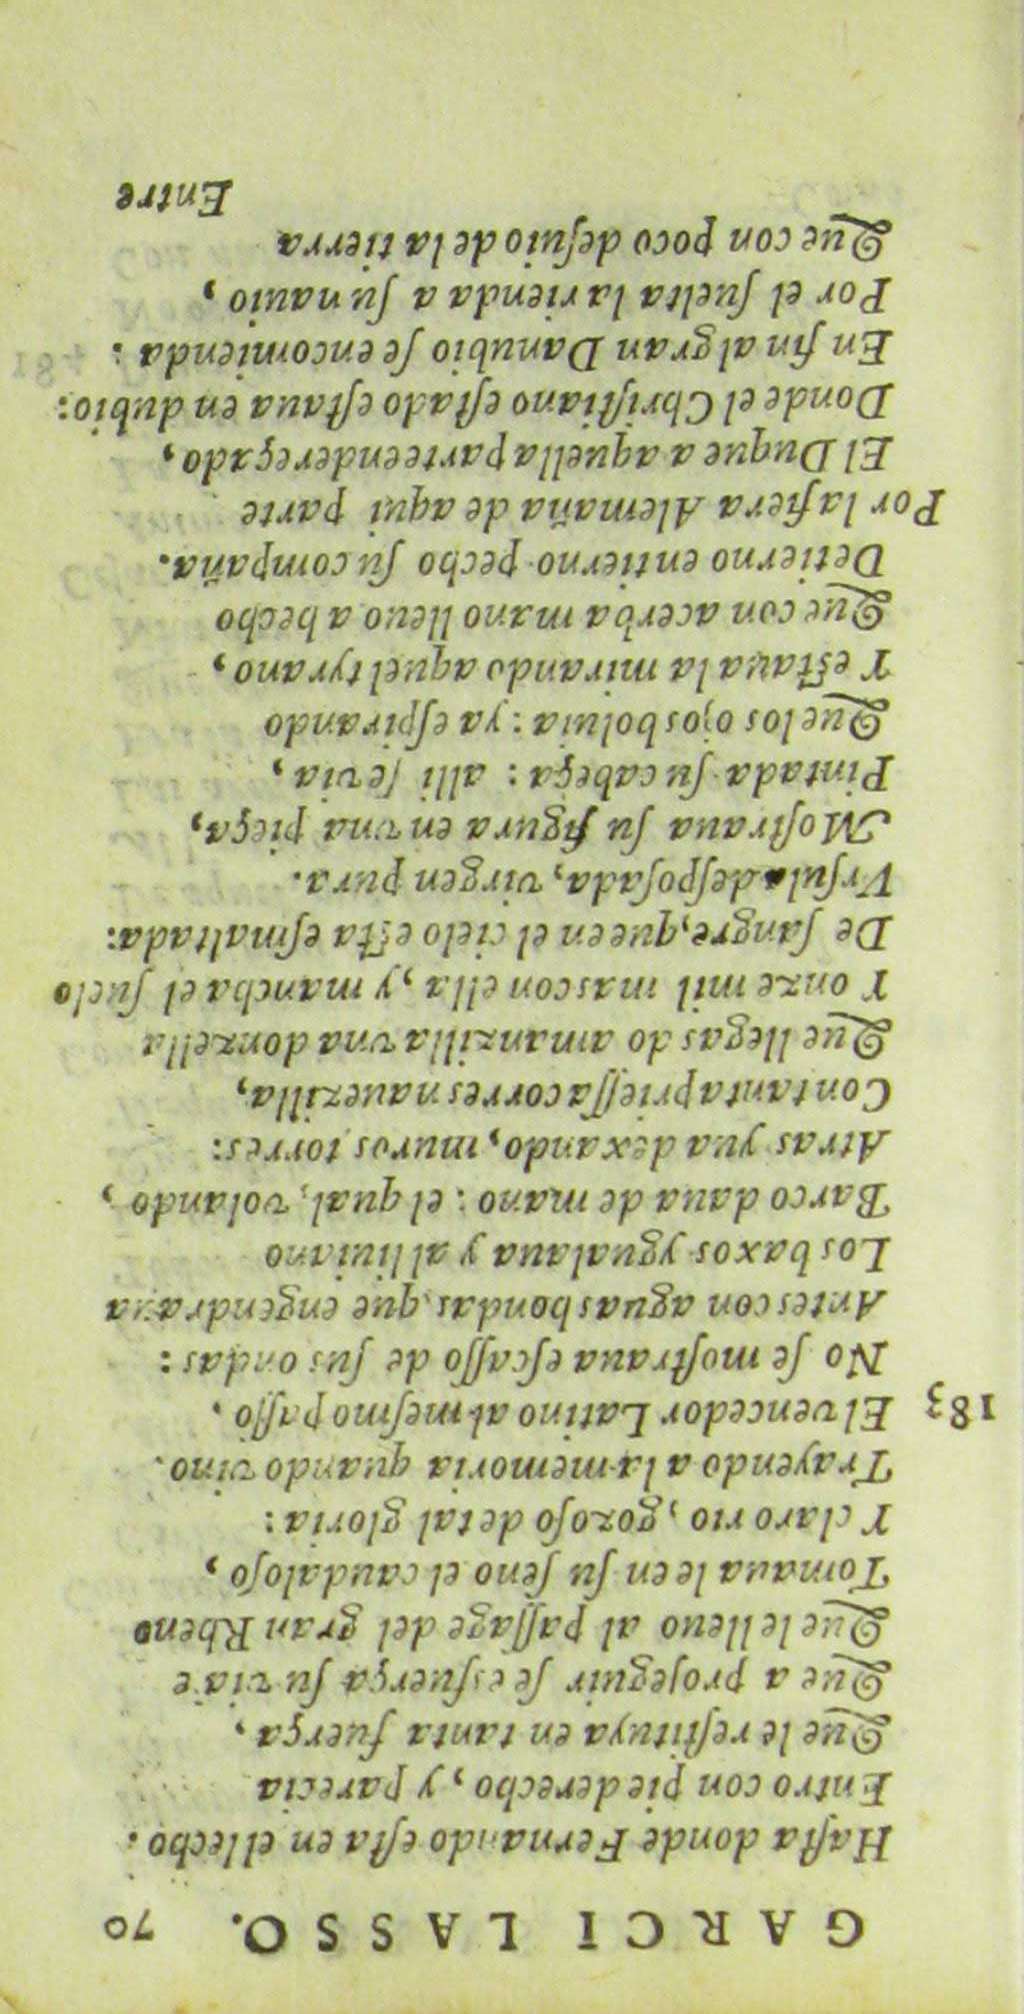 GARCI LASSO. 70
Hasta donde Fernando esta en el lecho.
Entro con pie derecho, y parecia
Que le restituya en tanta fuerça,
Que a proseguir se esfuerça su viaje
Que le lleuo al passage del gran Rheno
Tomaua le en su seno el caudaloso,
Y claro rio, gozoso de tal gloria:
Trayendo a la memoria quando vino.
El vencedor Latino al mesmo passo.
183
No se mostraua escasso de sus ondas:
Antes con aguas hondas que engendraua
Los baxos ygualaua y al liuiano
Barco daua de mano: el qual, volando,
Atras yua dexando, muros torres:
Con tanta priessa corres nauezilla,
Que llegas do amanzilla vna donzella
Y onze mil mas con ella, y mancha el suelo
De sangre, que en el cielo esta esmaltada:
Vrsula desposada, virgen pura.
Mostraua su figura en vna pieça,
Pintada su cabeça: alli se via,
Que los ojos boluia: ya espirando
Y estaua la mirando aquel tyrano,
Que con acerba mano lleuo a hecho
De tierno en tierno pecho su compaña.
Por la fiera Alemaña de aqui parte
El Duque a aquella parte enderezado,
Donde el Christiano estado estaua en dubio:
En fin al gran Danubio se encomienda:
Por el suelta la rienda a su nauio,
Que con poco desuio de la tierra
Entre